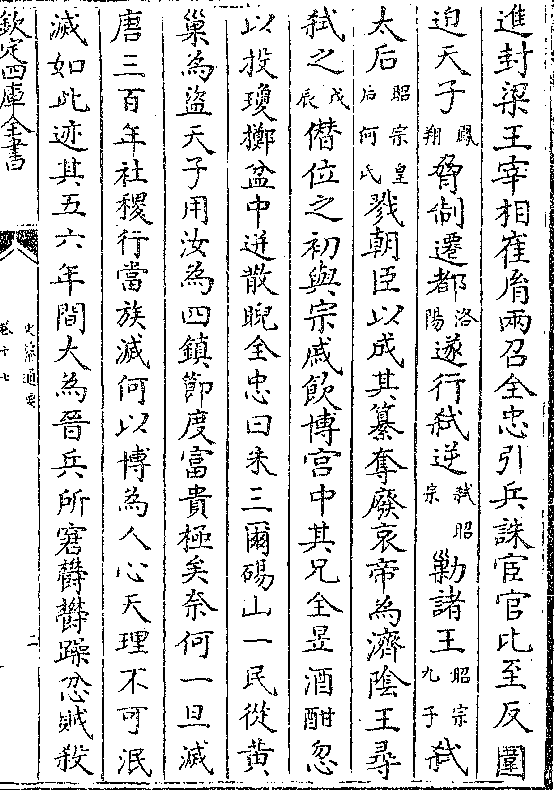 進封梁王宰相崔胤兩召全忠引兵誅宦官比至反圍
迫天子鳳翔脅制遷都洛陽遂行弑逆弑昭宗勦諸王昭宗九子弑
太后昭宗皇后何氏戮朝臣以成其簒奪廢哀帝為濟隂王尋
弑之戊辰僭位之初與宗戚飲博宫中其兄全昱酒酣忽
以投瓊擲盆中迸散睨全忠曰朱三爾碭山一民從黄
巢為盜天子用汝為四鎮節度富貴極矣奈何一旦滅
唐三百年社稷行當族滅何以博為人心天理不可泯
滅如此迹其五六年間大為晉兵所窘欝欝躁忍賊殺
欽定四庫全書
史纂通要
卷十七
二